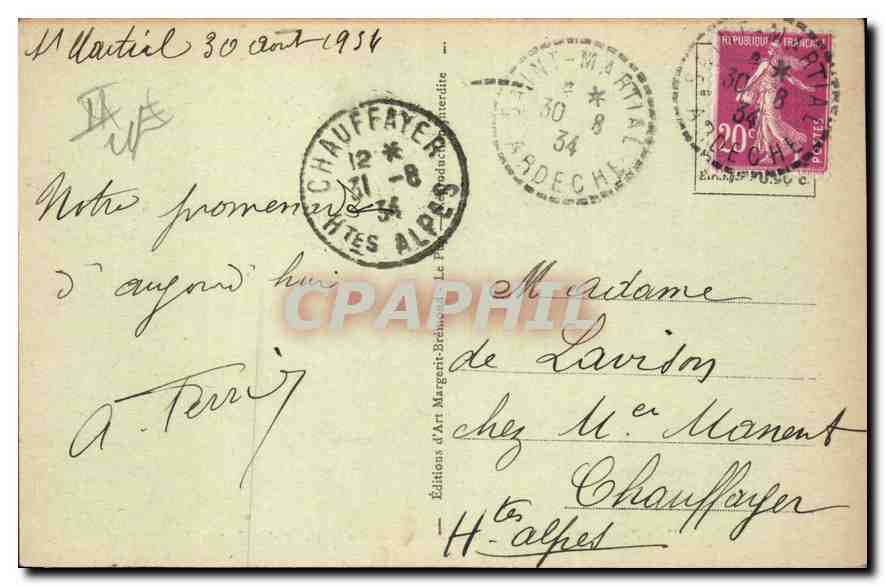 St Martial 30 août 1934
Notre promenade
d'aujourd'hui
A. Ferrié
CHAUFFAYER
12 *
31 -8
34
Htes ALPES
Éditions d'Art Margerit-Brémond, Le Puy — Reproduction interdite
SAINT-MARTIAL
*
30 8
34
ARDECHE
REPUBLIQUE FRANCAISE
20c
POSTES
SAINT-MARTIAL
*
30 8
34
ARDECHE
Etranger 0.90 c.
CPAPHIL
Madame
de Lavison
chez Mer Manent
Chauffayer
Htes alpes